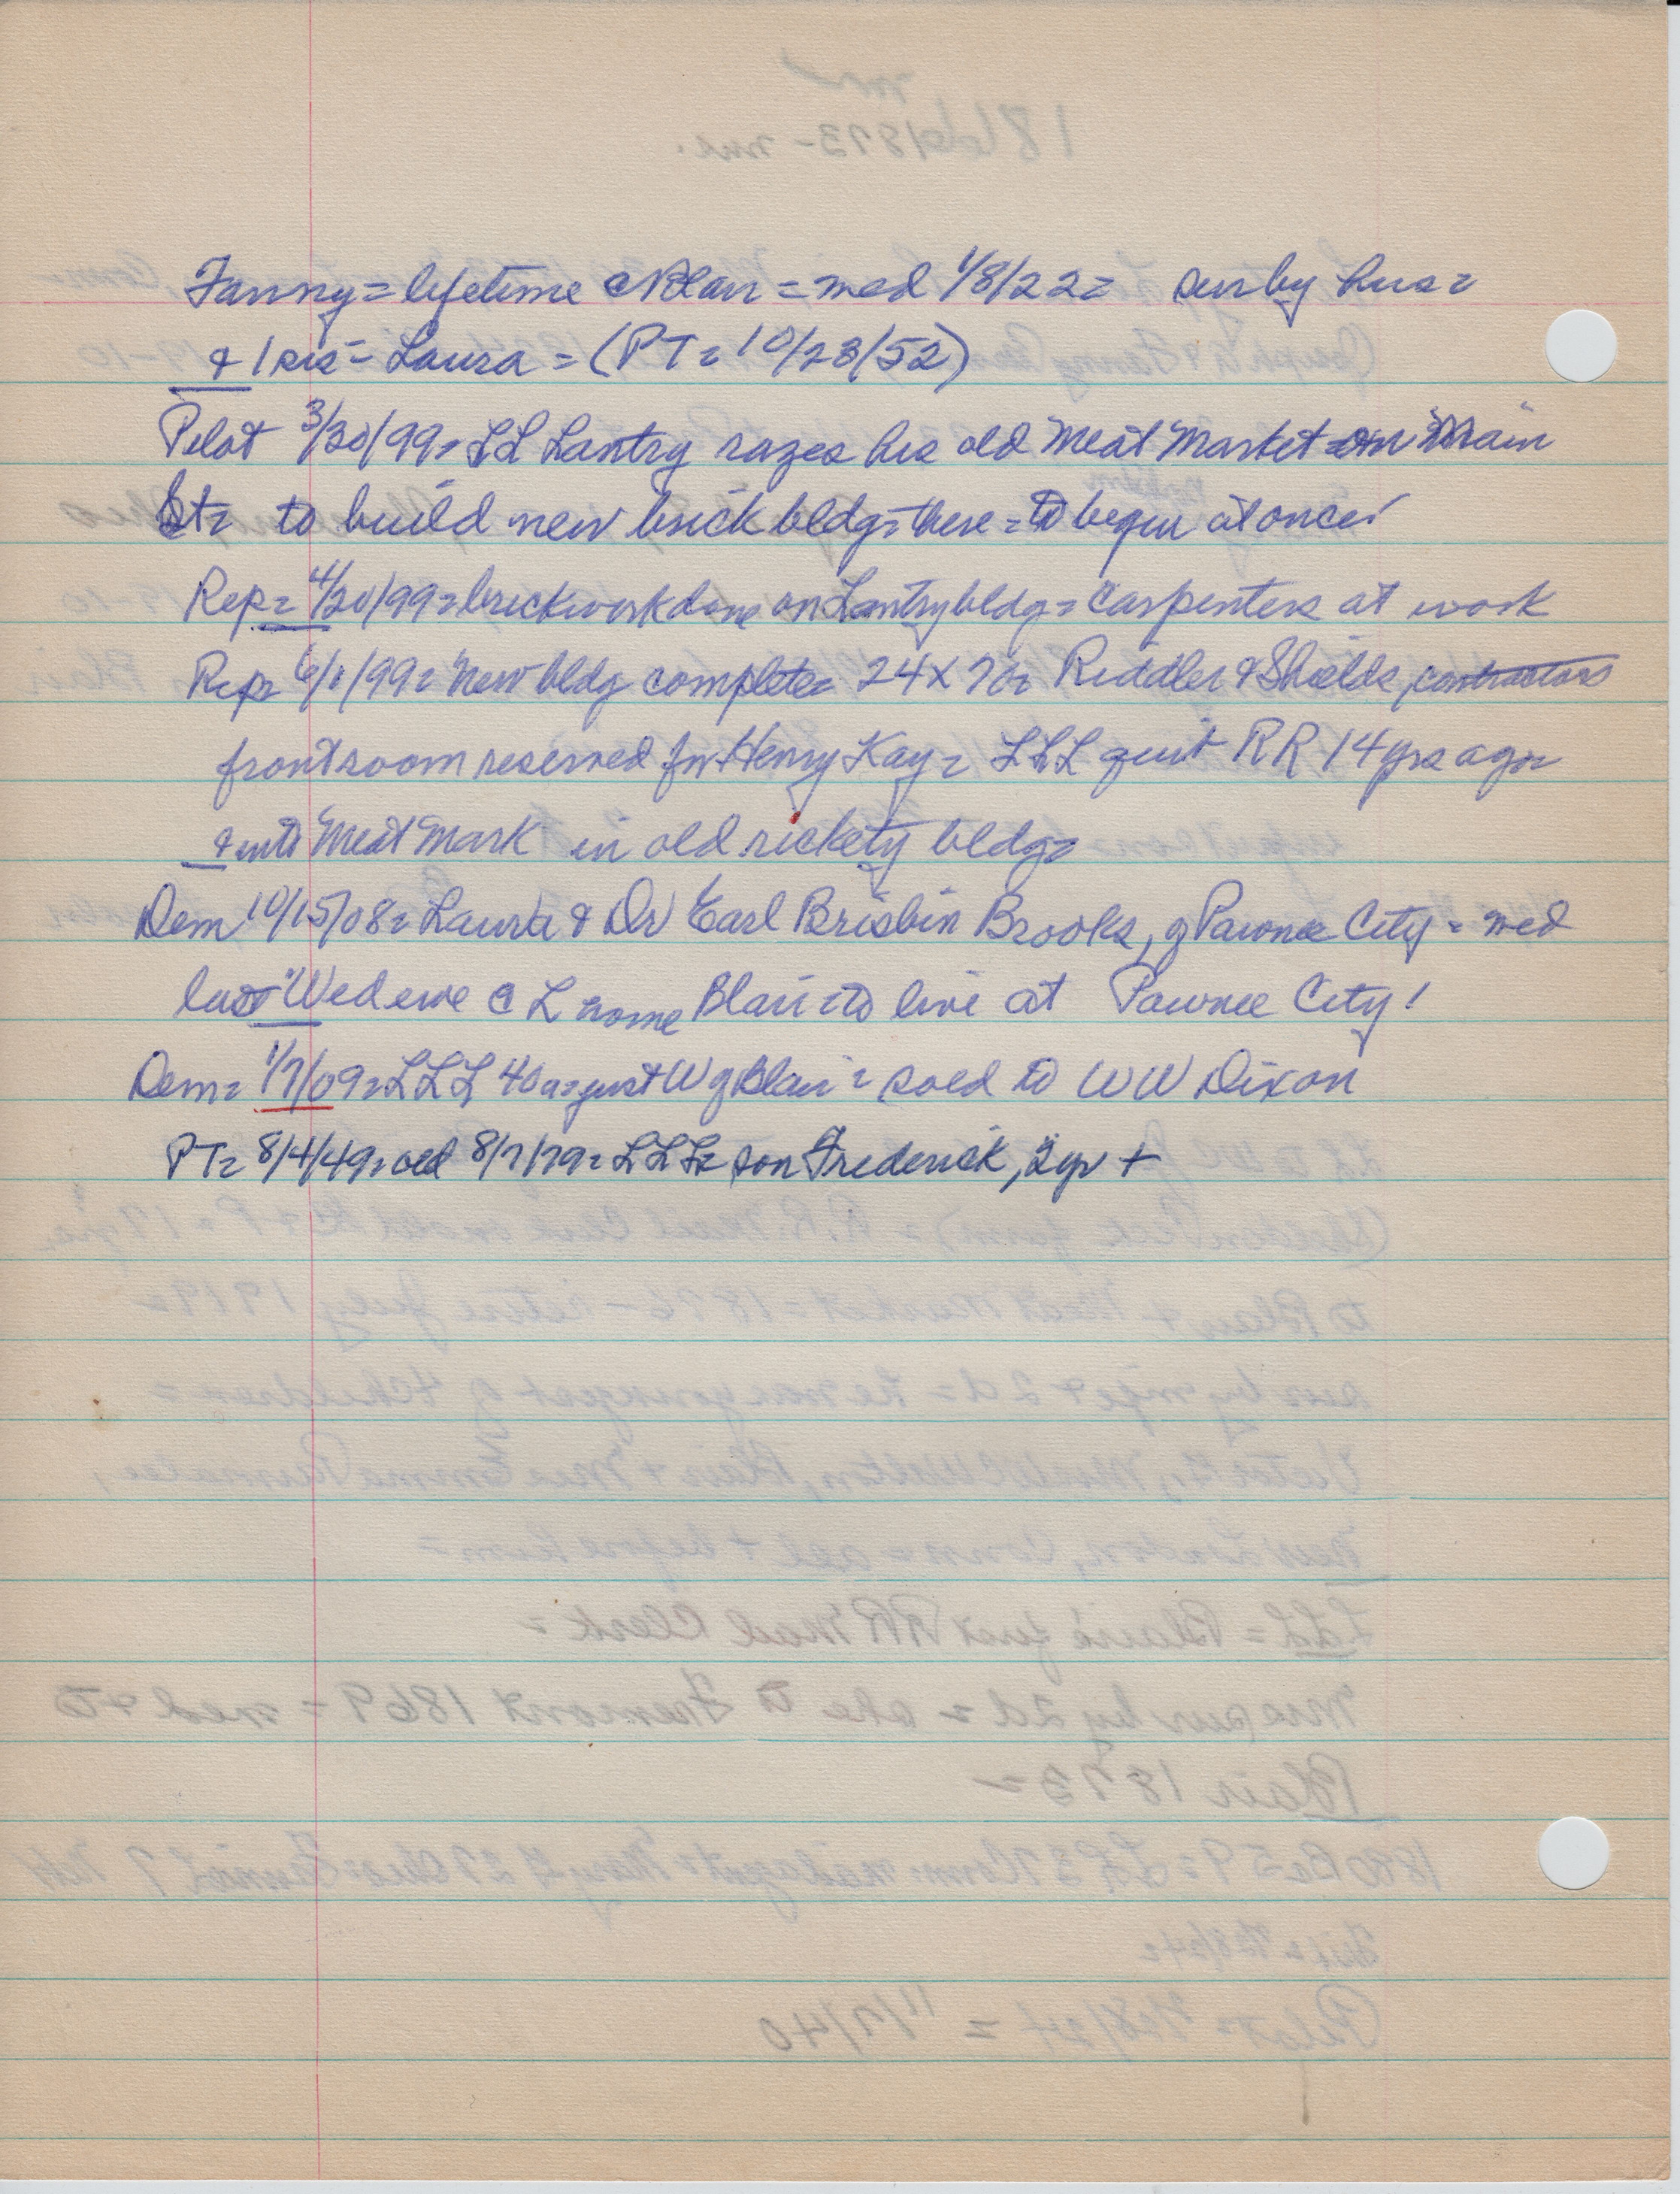 Fanny = lifetime @ Blair = med 1/8/22 = sur by hus =
& 1 sis = Laura = (PT = 10/23/52)
Pilot 3/30/99 = LL Lantry razes his old Meat Market on Main
St = to build new brick bldg = there = to begin at once!
Rep = 4/20/99 = brickwork done on Lantry bldg = carpenters at work
Rep = 6/1/99 = New bldg complete = 24 x 70 = Riddler & Shields, contractors
front room reserved for Henry Kay = LLL quit RR 14 yrs ago =
& into Meat Mark in old rickety bldg =
Dem 10/15/08 = Laura & Dr Earl Brisbin Brooks, of Pawnee City = med
last Wed eve @ L home Blair = to live at Pawnee City!
Dem = 1/7/09 = LLL 40 a = just W of Blair = sold to WW Dixon
PT = 8/4/49 = 8/7/79 = LLL = son Frederick, 2 yr +